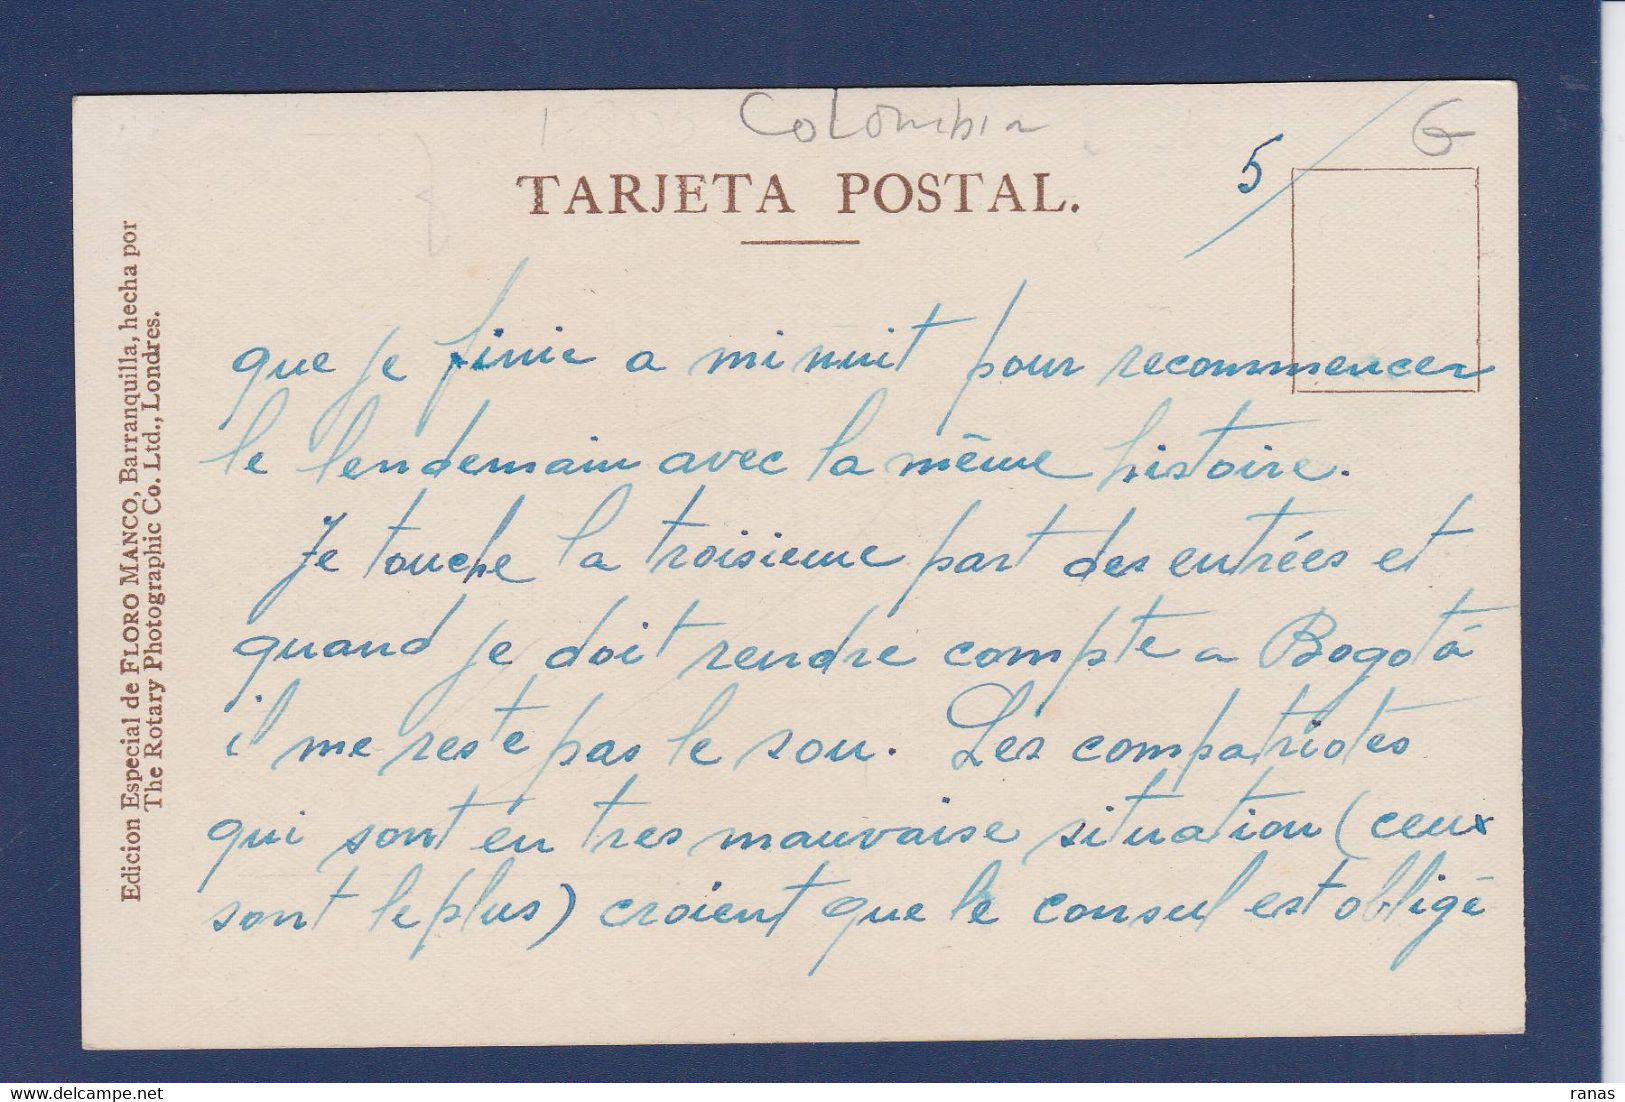 Colombia
5
TARJETA POSTAL.
Edicion Especial de FLORO MANCO, Barranquilla, hecha por
The Rotary Photographic Co. Ltd., Londres.
que je finie a minuit pour recommencer
le lendemain avec la même histoire.
Je touche la troisieme part des entrées et
quand je doit rendre compte a Bogotá
il me reste pas le sou. Les compatriotes
qui sont en tres mauvaise situation (ceux
sont le plus) croient que le consul est obligé
ranas